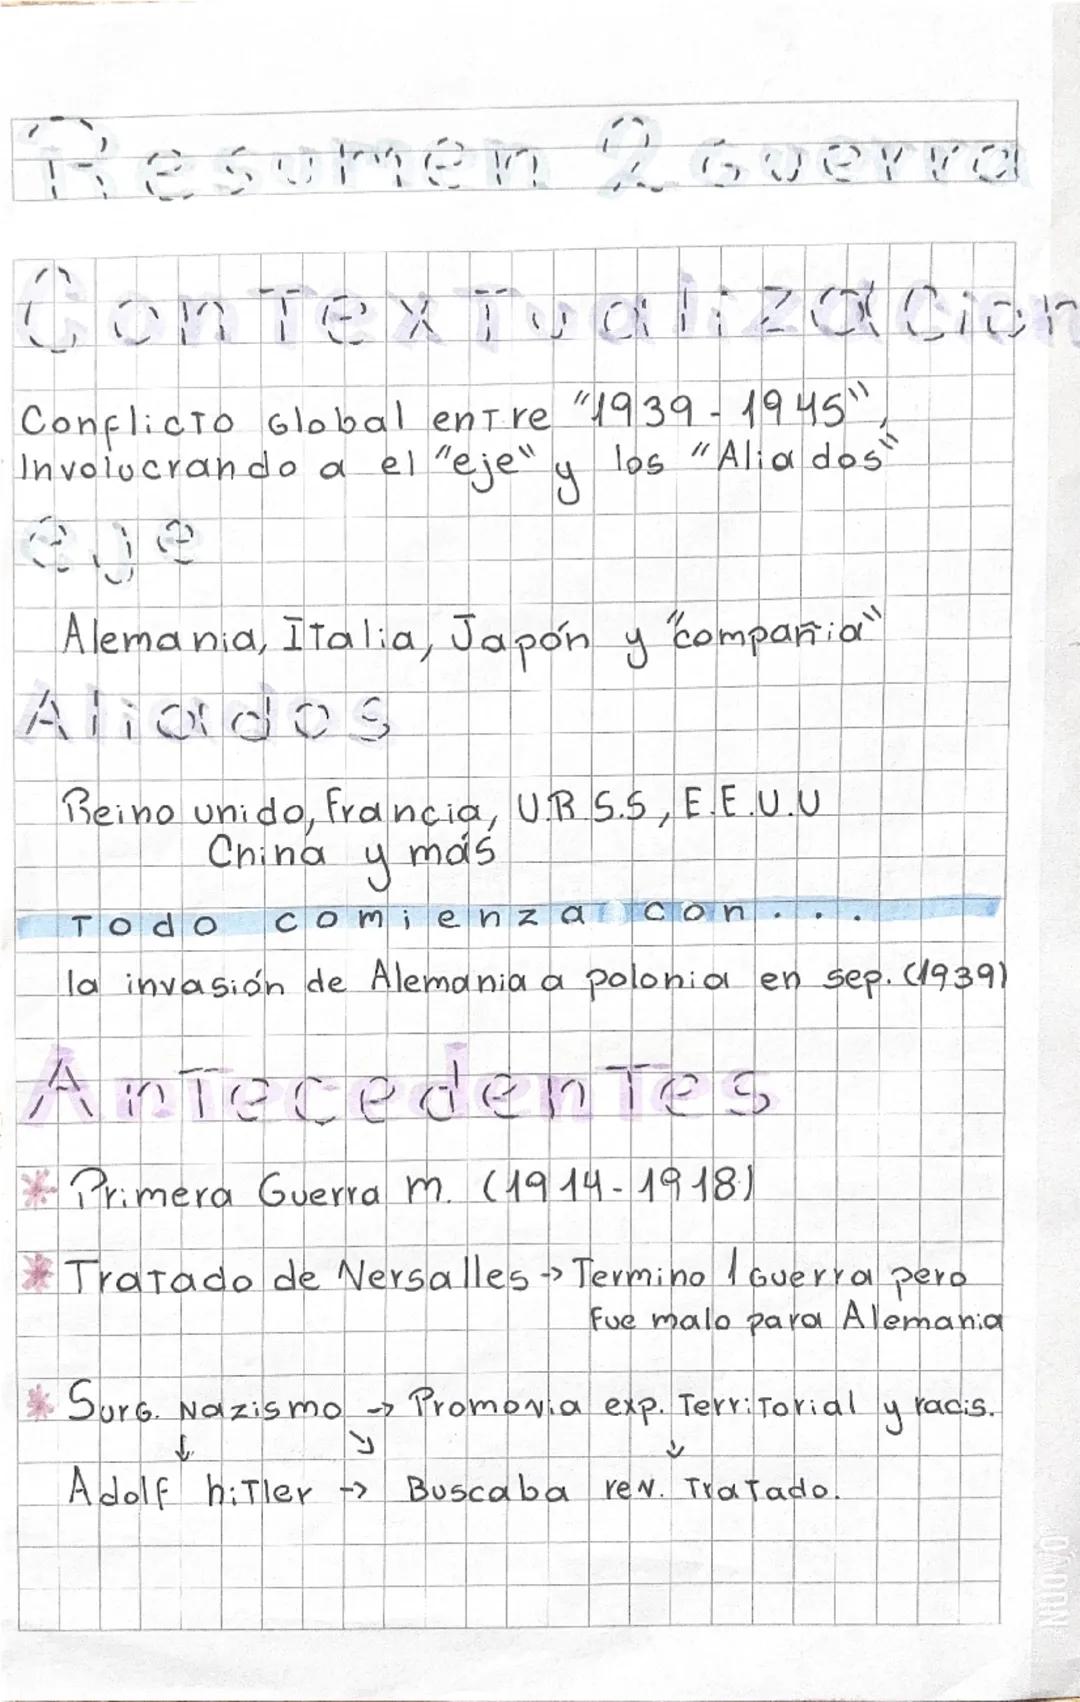 Resumen 2 Guerra
Contextualizacion
Conflicto Global entre "1939-1945",
Involucrando a el "eje" y los "Aliados"
eje
Alemania, Italia, Japón y "compañia"
Aliados
Reino unido, Francia, U.R.S.S, E.E.U.U
China y más
Todo comienza con...
la invasión de Alemania a polonia en sep. (1939)
Antecedentes
* Primera Guerra m. (1914-1918)
* Tratado de Versalles → Termino 1 Guerra pero
fue malo para Alemania
* Surg. Nazismo → Promovia exp. Territorial y racis.
↓ ↘ ↓
Adolf hitler → Buscaba rev. Tratado.